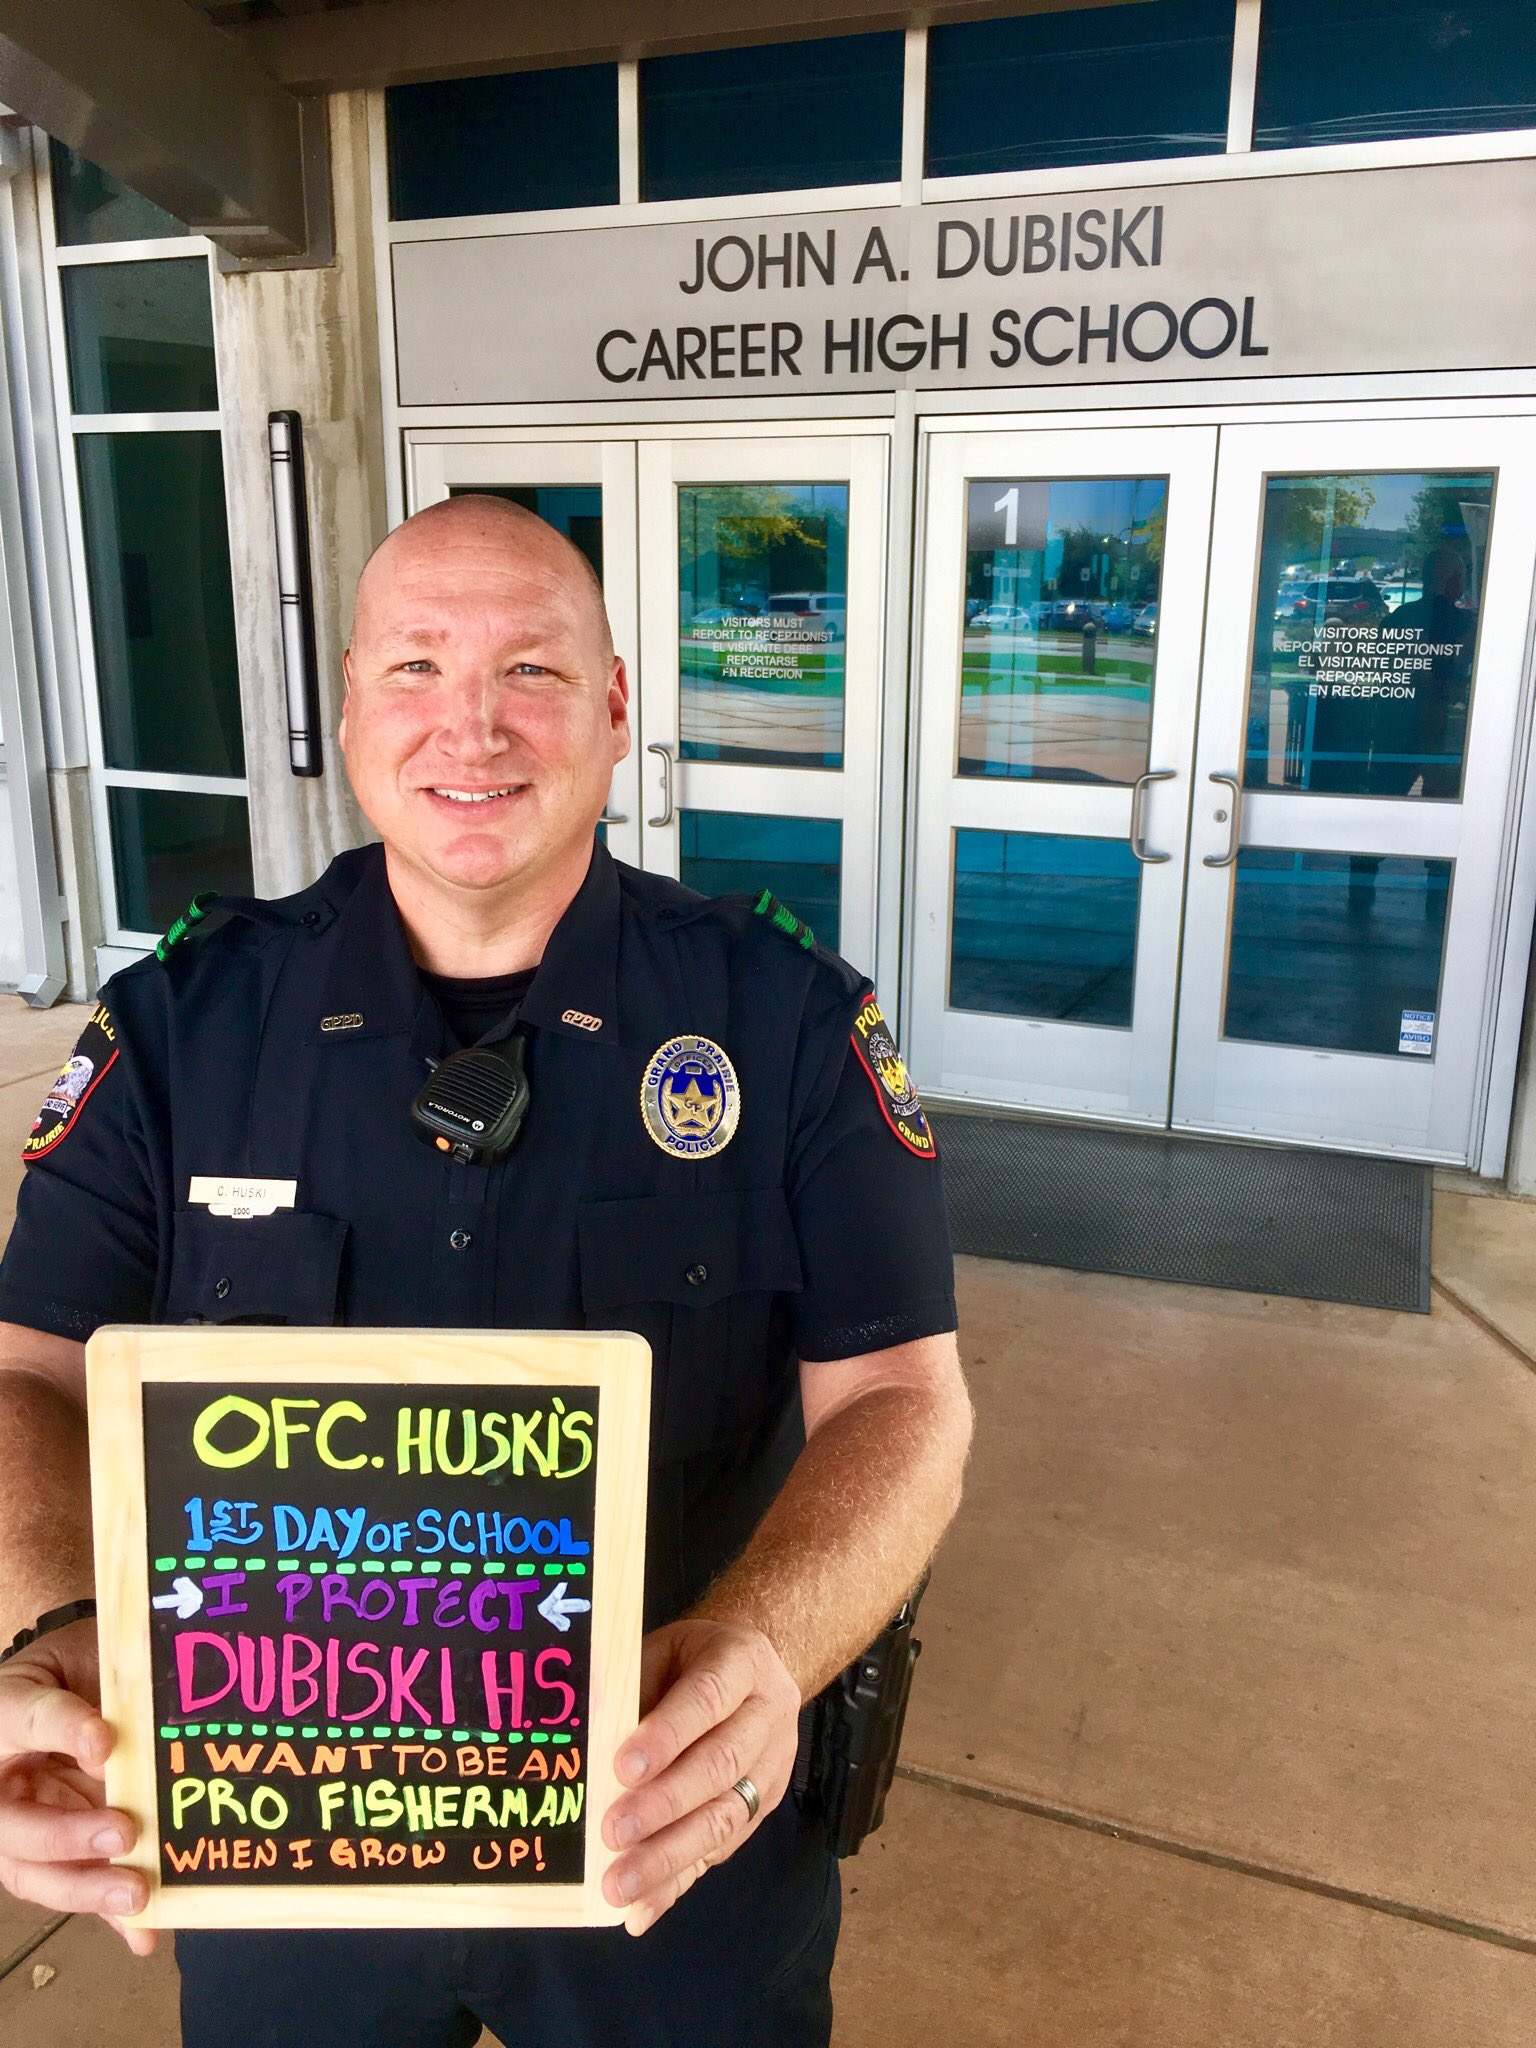 JOHN A. DUBISKI
CAREER HIGH SCHOOL
1
VISITORS MUST
REPORT TO RECEPTIONIST
EL VISITANTE DEBE
REPORTARSE
EN RECEPCION
VISITORS MUST
REPORT TO RECEPTIONIST
EL VISITANTE DEBE
REPORTARSE
EN RECEPCION
NOTICE
AVISO
GPPD
GPPD
GRAND PRAIRIE
OFFICER
GP
POLICE
MOTOROLA
C. HUSKI
2000
PRAIRIE
GRAND
OFC. HUSKI'S
1ST DAY OF SCHOOL
I PROTECT
DUBISKI H.S.
I WANT TO BE AN
PRO FISHERMAN
WHEN I GROW UP!